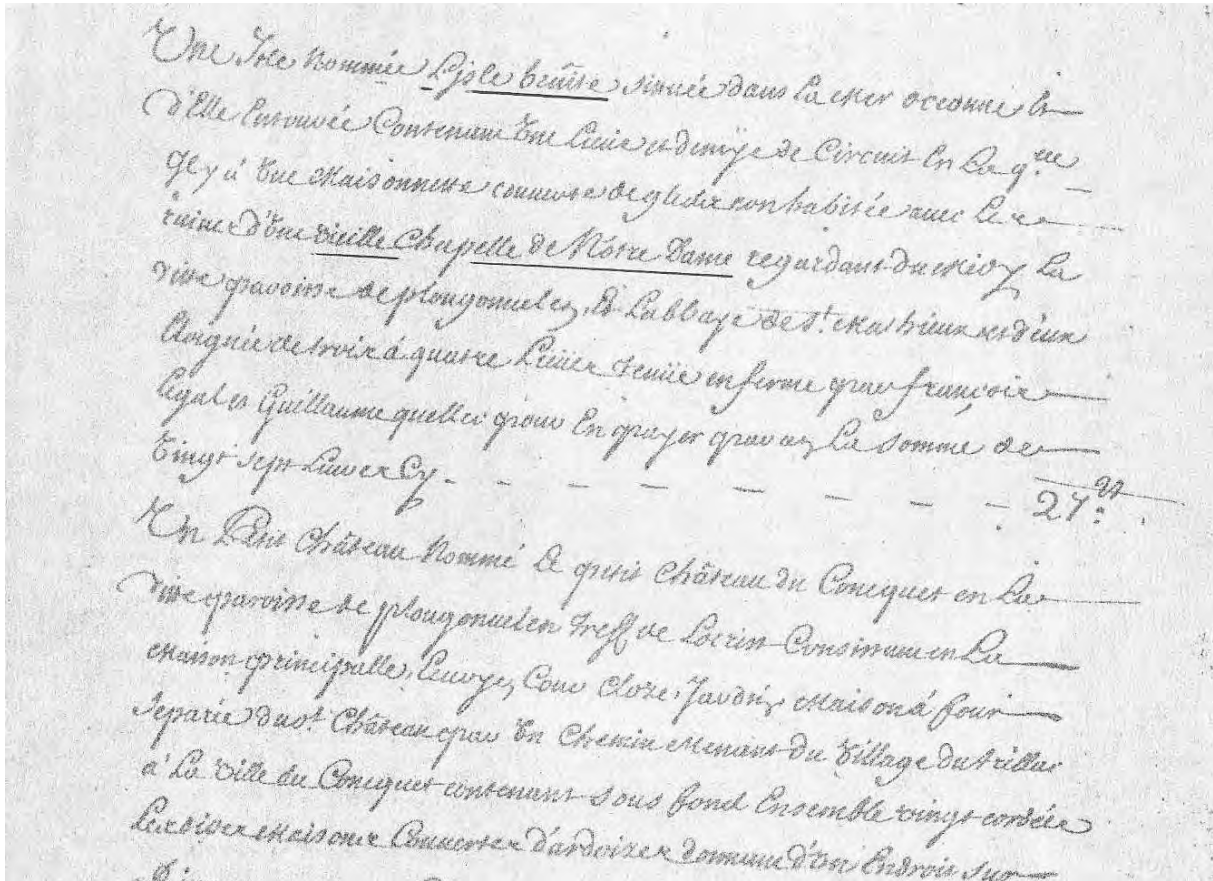 Une Isle nommée L'isle beniste située dans La Mer occeanne Et
d'Elle Entouvée Contenant Une Lieüe et demÿe de Circuit En La q.elle
Il y á Une Maisonnette couverte de gledix non habitée avec Les
ruinne d'Une vieille Chapelle de Notre Dame regardant du Midy La
ditte paroisse de plougonuelen, Et L'abbaye de St. Mathieux et d'eux
Eloignée de trois á quatre Lieües tenüe en ferme par françois
Legal et Guillaume quellec pour En payer par an La somme de
Vingt sept Livres Cy - - - - - - - - 27
Un Petit Château Nommé Le petit Château du Concquet en La
ditte paroisse de plougonuelen treff de Locrist Consistant en La
Maison principalle, Court Close, Jardin, Maison á four
separée dudt. Château par Un Chemin Menant du Village du
á La Ville du Concquet contenant sous fond Ensemble vingt cordée
Lesdites Maisons Couvertes d'ardoizes donnant d'Un Endroit sur